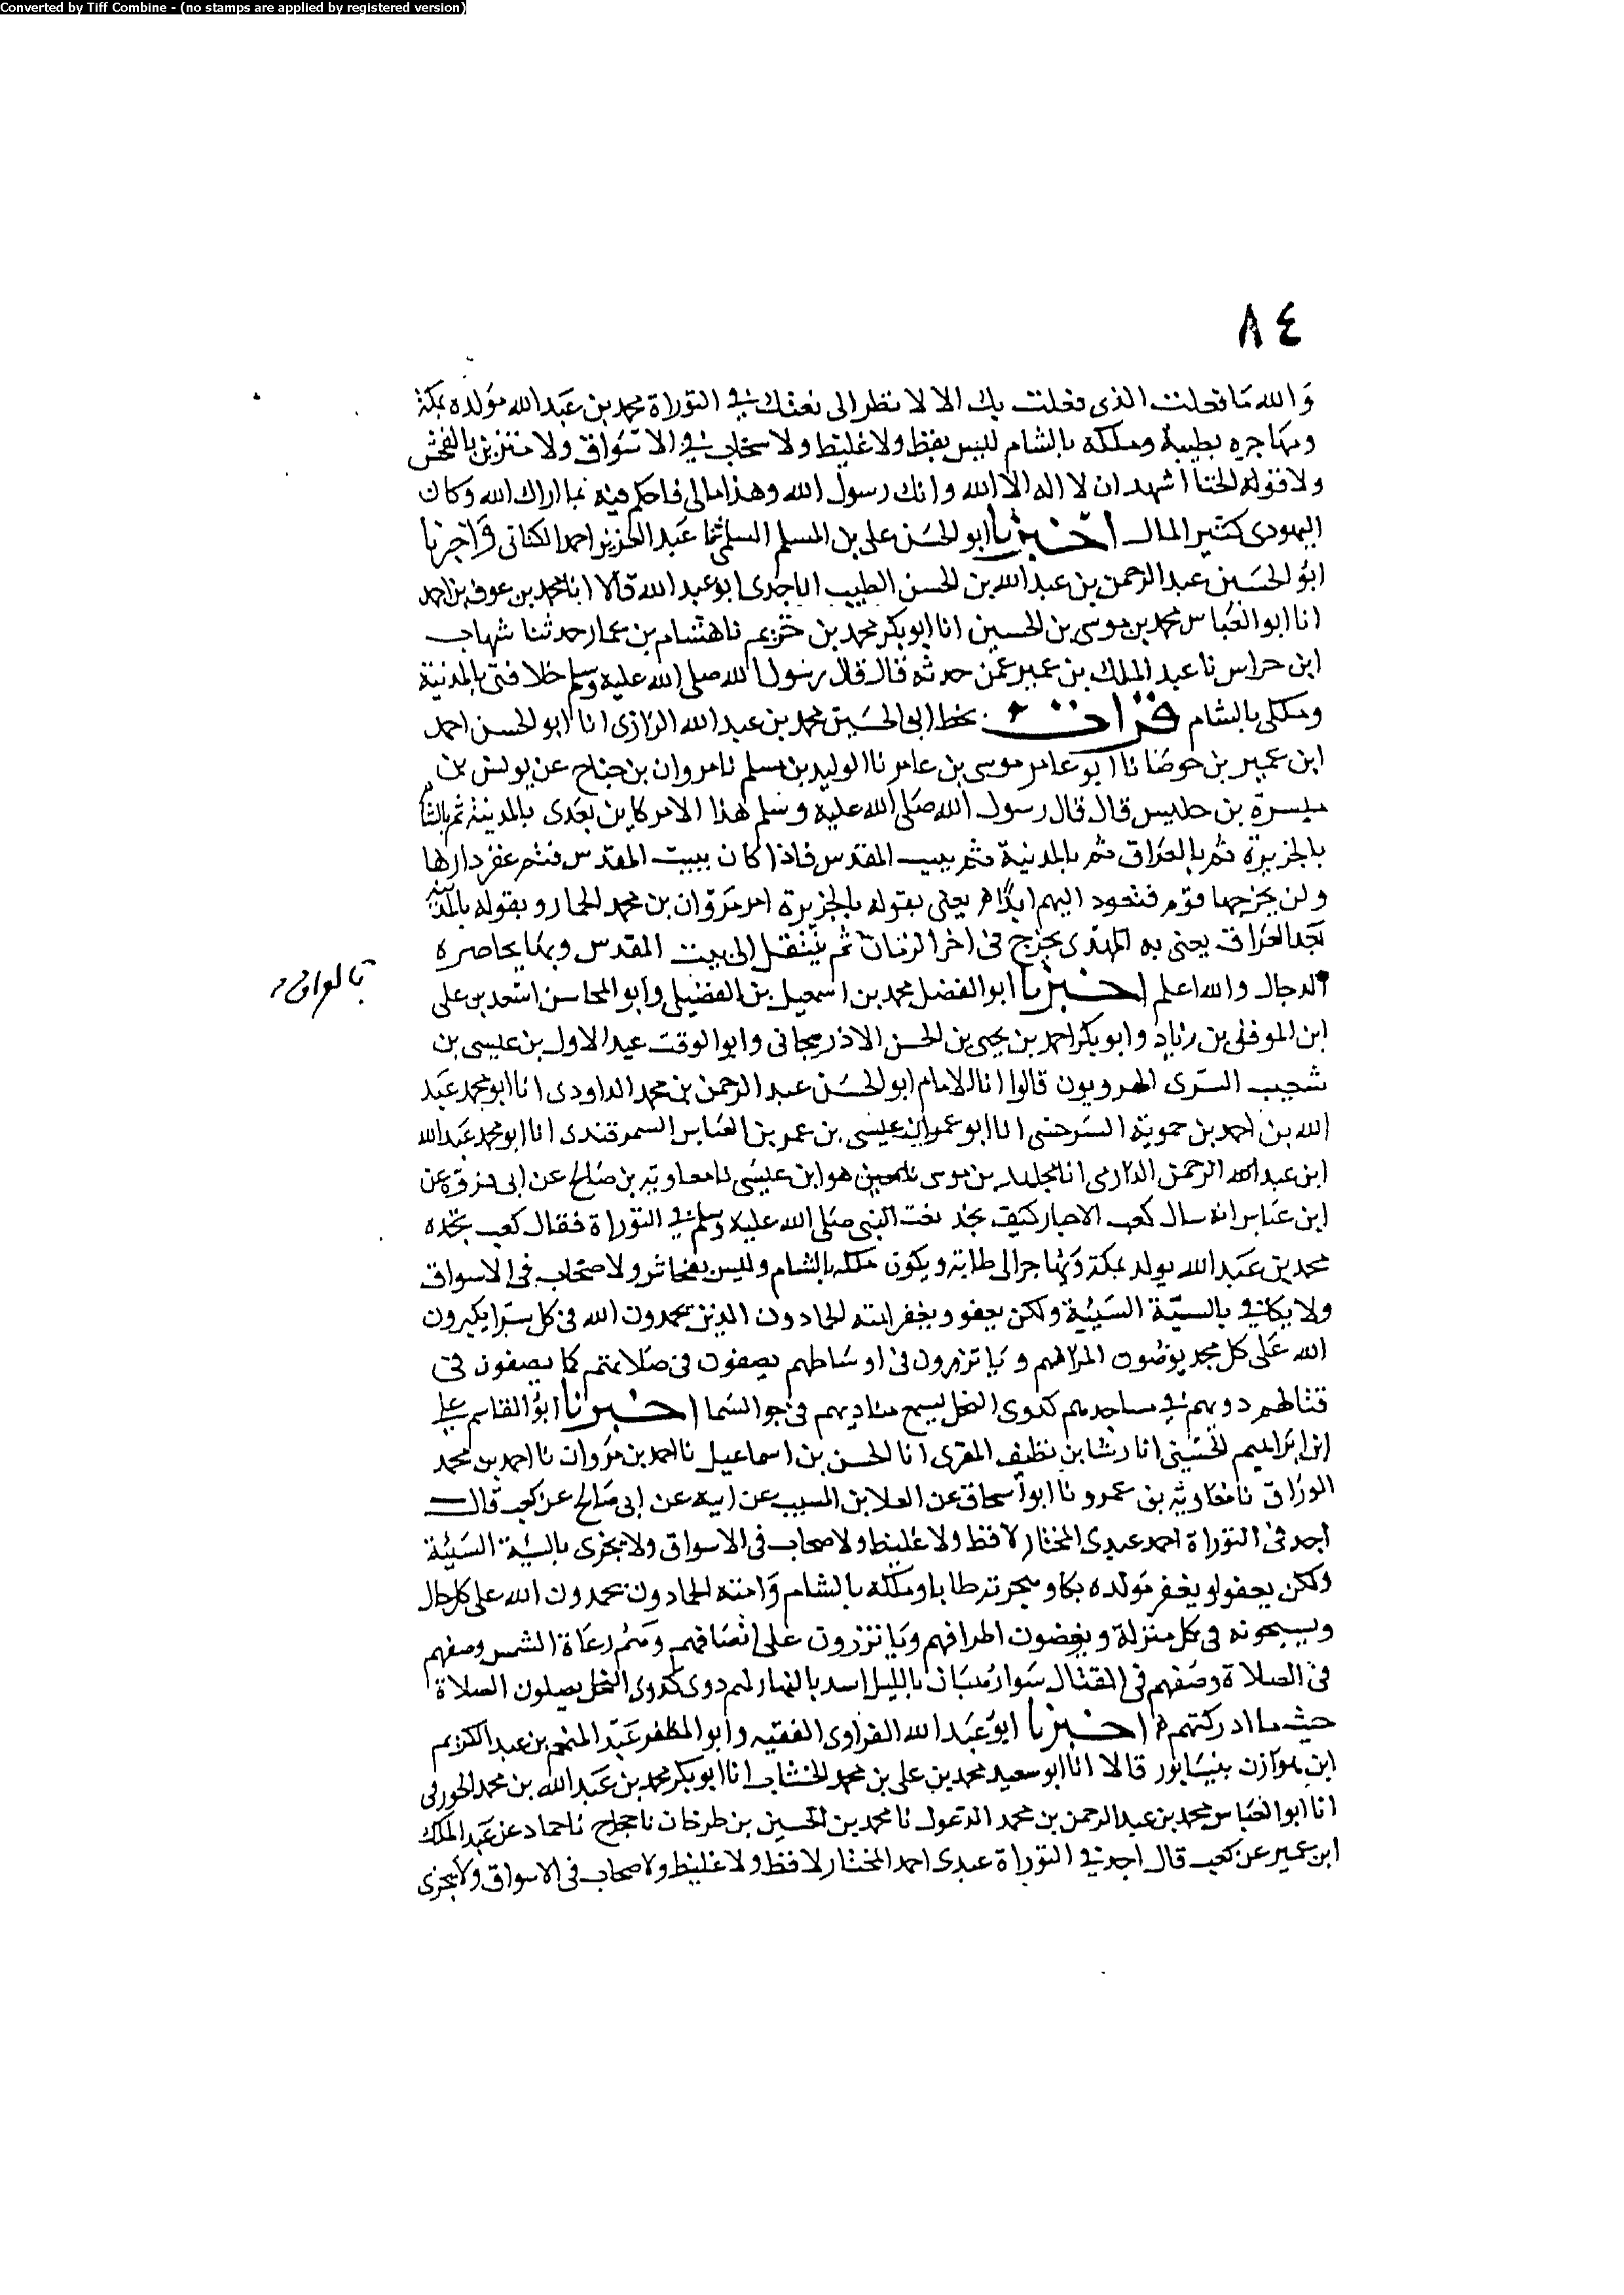 Converted by Tiff Combine - (no stamps are applied by registered version)
٨٤
والله ما فعلت الذى فعلت بك الا لانظر الى نعتك في التوراة محمد بن عبد الله مولده بمكة
ومهاجره بطيبة وملكه بالشام ليس بفظ ولا غليظ ولا سخاب في الاسواق ولا متزين بالفحش
ولا قوله الخنا اشهد ان لا اله الا الله وانك رسول الله وهذا مالى فاحكم فيه بما اراك الله وكان
اليهودى كثير المال اخبرنا ابو الحسن على بن المسلم السلمى ثنا عبد العزيز احمد الكتانى واخبرنا
ابو الحسين عبد الرحمن بن عبد الله بن الحسن الطيب انا جدى ابو عبد الله قالا انا محمد بن عوف بن احمد
انا ابو العباس محمد بن موسى بن الحسين انا ابو بكر محمد بن خريم نا هشام بن عمار حدثنا شهاب
ابن حراس نا عبد الملك بن عمير عمن حدثه قال قال رسول الله صلى الله عليه وسلم خلافتى بالمدينة
وملكى بالشام قرات بخط ابى الحسين محمد بن عبد الله الرازى انا ابو الحسن احمد
ابن عمير بن حوصا نا ابو عامر موسى بن عامر نا الوليد بن مسلم نا مروان بن جناح عن يونس بن
ميسرة بن حلبس قال قال رسول الله صلى الله عليه وسلم هذا الامر كاين بعدى بالمدينة ثم بالشام
بالجزيرة ثم بالعراق ثم بالمدينة ثم ببيت المقدس فاذا كان ببيت المقدس فثم عقر دارها
ولن يخرجها قوم فتعود اليهم ابدا يعنى بقوله بالجزيرة امر مروان بن محمد الحمار وبقوله بالمدينة
بعد العراق يعنى به المهدى يخرج فى اخر الزمان ثم ينتقل الى بيت المقدس وبها يحاصره
الدجال والله اعلم اخبرنا ابو الفضل محمد بن اسمعيل بن الفضيلى وابو المحاسن اسعد بن على
ابن الموفق بن زياد وابو بكر احمد بن يحيى بن الحسن الاذربيجانى وابو الوقت عبد الاول بن عيسى بن
شعيب السزى الهرويون قالوا انا الامام ابو الحسن عبد الرحمن بن محمد الداودى انا ابو محمد عبد
الله بن احمد بن حموية السرخسى انا ابو عمران عيسى بن عمر بن العباس السمرقندى انا ابو محمد عبد الله
ابن عبد الله الرحمن الدارمى انا مجاهد بن موسى نا معن هو ابن عيسى نا معاوية بن صالح عن ابى فروة عن
ابن عباس انه سال كعب الاحبار كيف تجد نعت النبى صلى الله عليه وسلم في التوراة فقال كعب نجده
محمد بن عبد الله يولد بمكة ويهاجر الى طابة ويكون ملكه بالشام وليس بفحاش ولا صخاب فى الاسواق
ولا يكافي بالسيئة السيئة ولكن يعفو ويغفر امته الحمادون الذين يحمدون الله فى كل سرا يكبرون
الله على كل نجد يوضون اطرافهم وياتزرون فى اوساطهم يصفون فى صلاتهم كما يصفون فى
قتالهم دويهم في مساجدهم كدوى النحل يسمع مناديهم فى جو السما اخبرنا ابو القاسم على
ابن ابراهيم الحسينى انا رشا بن نظيف المقرى انا الحسن بن اسماعيل نا احمد بن مروان نا احمد بن محمد
الوراق نا معاوية بن عمرو نا ابو اسحاق عن العلا بن المسيب عن ابيه عن ابى صالح عن كعب قال
اجد فى التوراة احمد عبدى المختار لا فظ ولا غليظ ولا صخاب فى الاسواق ولا يجزى بالسيئة السيئة
ولكن يعفو ويغفر مولده بكا ومهجرته طابا وملكه بالشام وامته الحمادون يحمدون الله على كل حال
ويسبحونه فى كل منزلة ويوضون اطرافهم وياتزرون على انصافهم وهم رعاة الشمس وصفهم
فى الصلاة وصفهم فى القتال سوا رهبان بالليل اسد بالنهار لهم دوى كدوى النحل يصلون الصلاة
حيث ما ادركتهم اخبرنا ابو عبد الله الفراوى الفقيه وابو المظفر عبد المنعم بن عبد الكريم
ابن هوازن بنيسابور قالا انا ابو سعيد محمد بن على بن محمد الخشاب انا ابو بكر محمد بن عبد الله بن محمد الجوزقى
انا ابو العباس محمد بن عبد الرحمن بن محمد الدغولى نا محمد بن الحسين بن طرخان نا حجاج نا حماد عن عبد الملك
ابن عمير عن كعب قال اجد في التوراة عبدى احمد المختار لا فظ ولا غليظ ولا صخاب فى الاسواق ولا يجزى